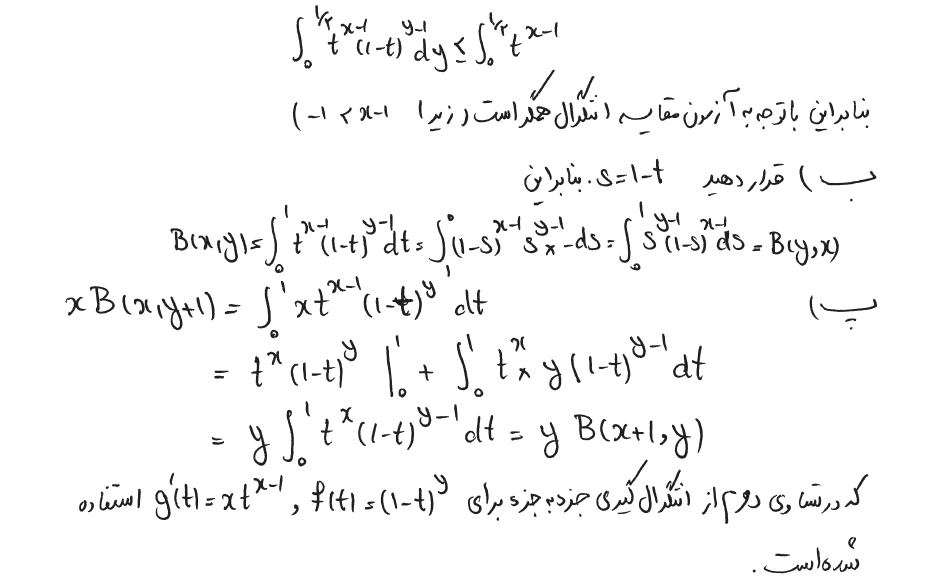 ∫₀^{۱/۲} t^{x-1}(1-t)^{y-1} dy ≤ ∫₀^{۱/۲} t^{x-1}
بنابراین با توجه به آزمون مقایسه انتگرال همگراست (زیرا -1 < x-1)
ب) قرار دهید s=1-t. بنابراین
B(x,y) = ∫₀¹ t^{x-1}(1-t)^{y-1} dt = ∫₁⁰ (1-s)^{x-1} s^{y-1} × -ds = ∫₀¹ s^{y-1}(1-s)^{x-1} ds = B(y,x)
پ) x B(x,y+1) = ∫₀¹ x t^{x-1} (1-t)^y dt
= t^x (1-t)^y |₀¹ + ∫₀¹ t^x × y(1-t)^{y-1} dt
= y ∫₀¹ t^x (1-t)^{y-1} dt = y B(x+1,y)
که در تساوی دوم از انتگرال گیری جزء به جزء برای f(t)=(1-t)^y , g'(t)=x t^{x-1} استفاده
شده است.